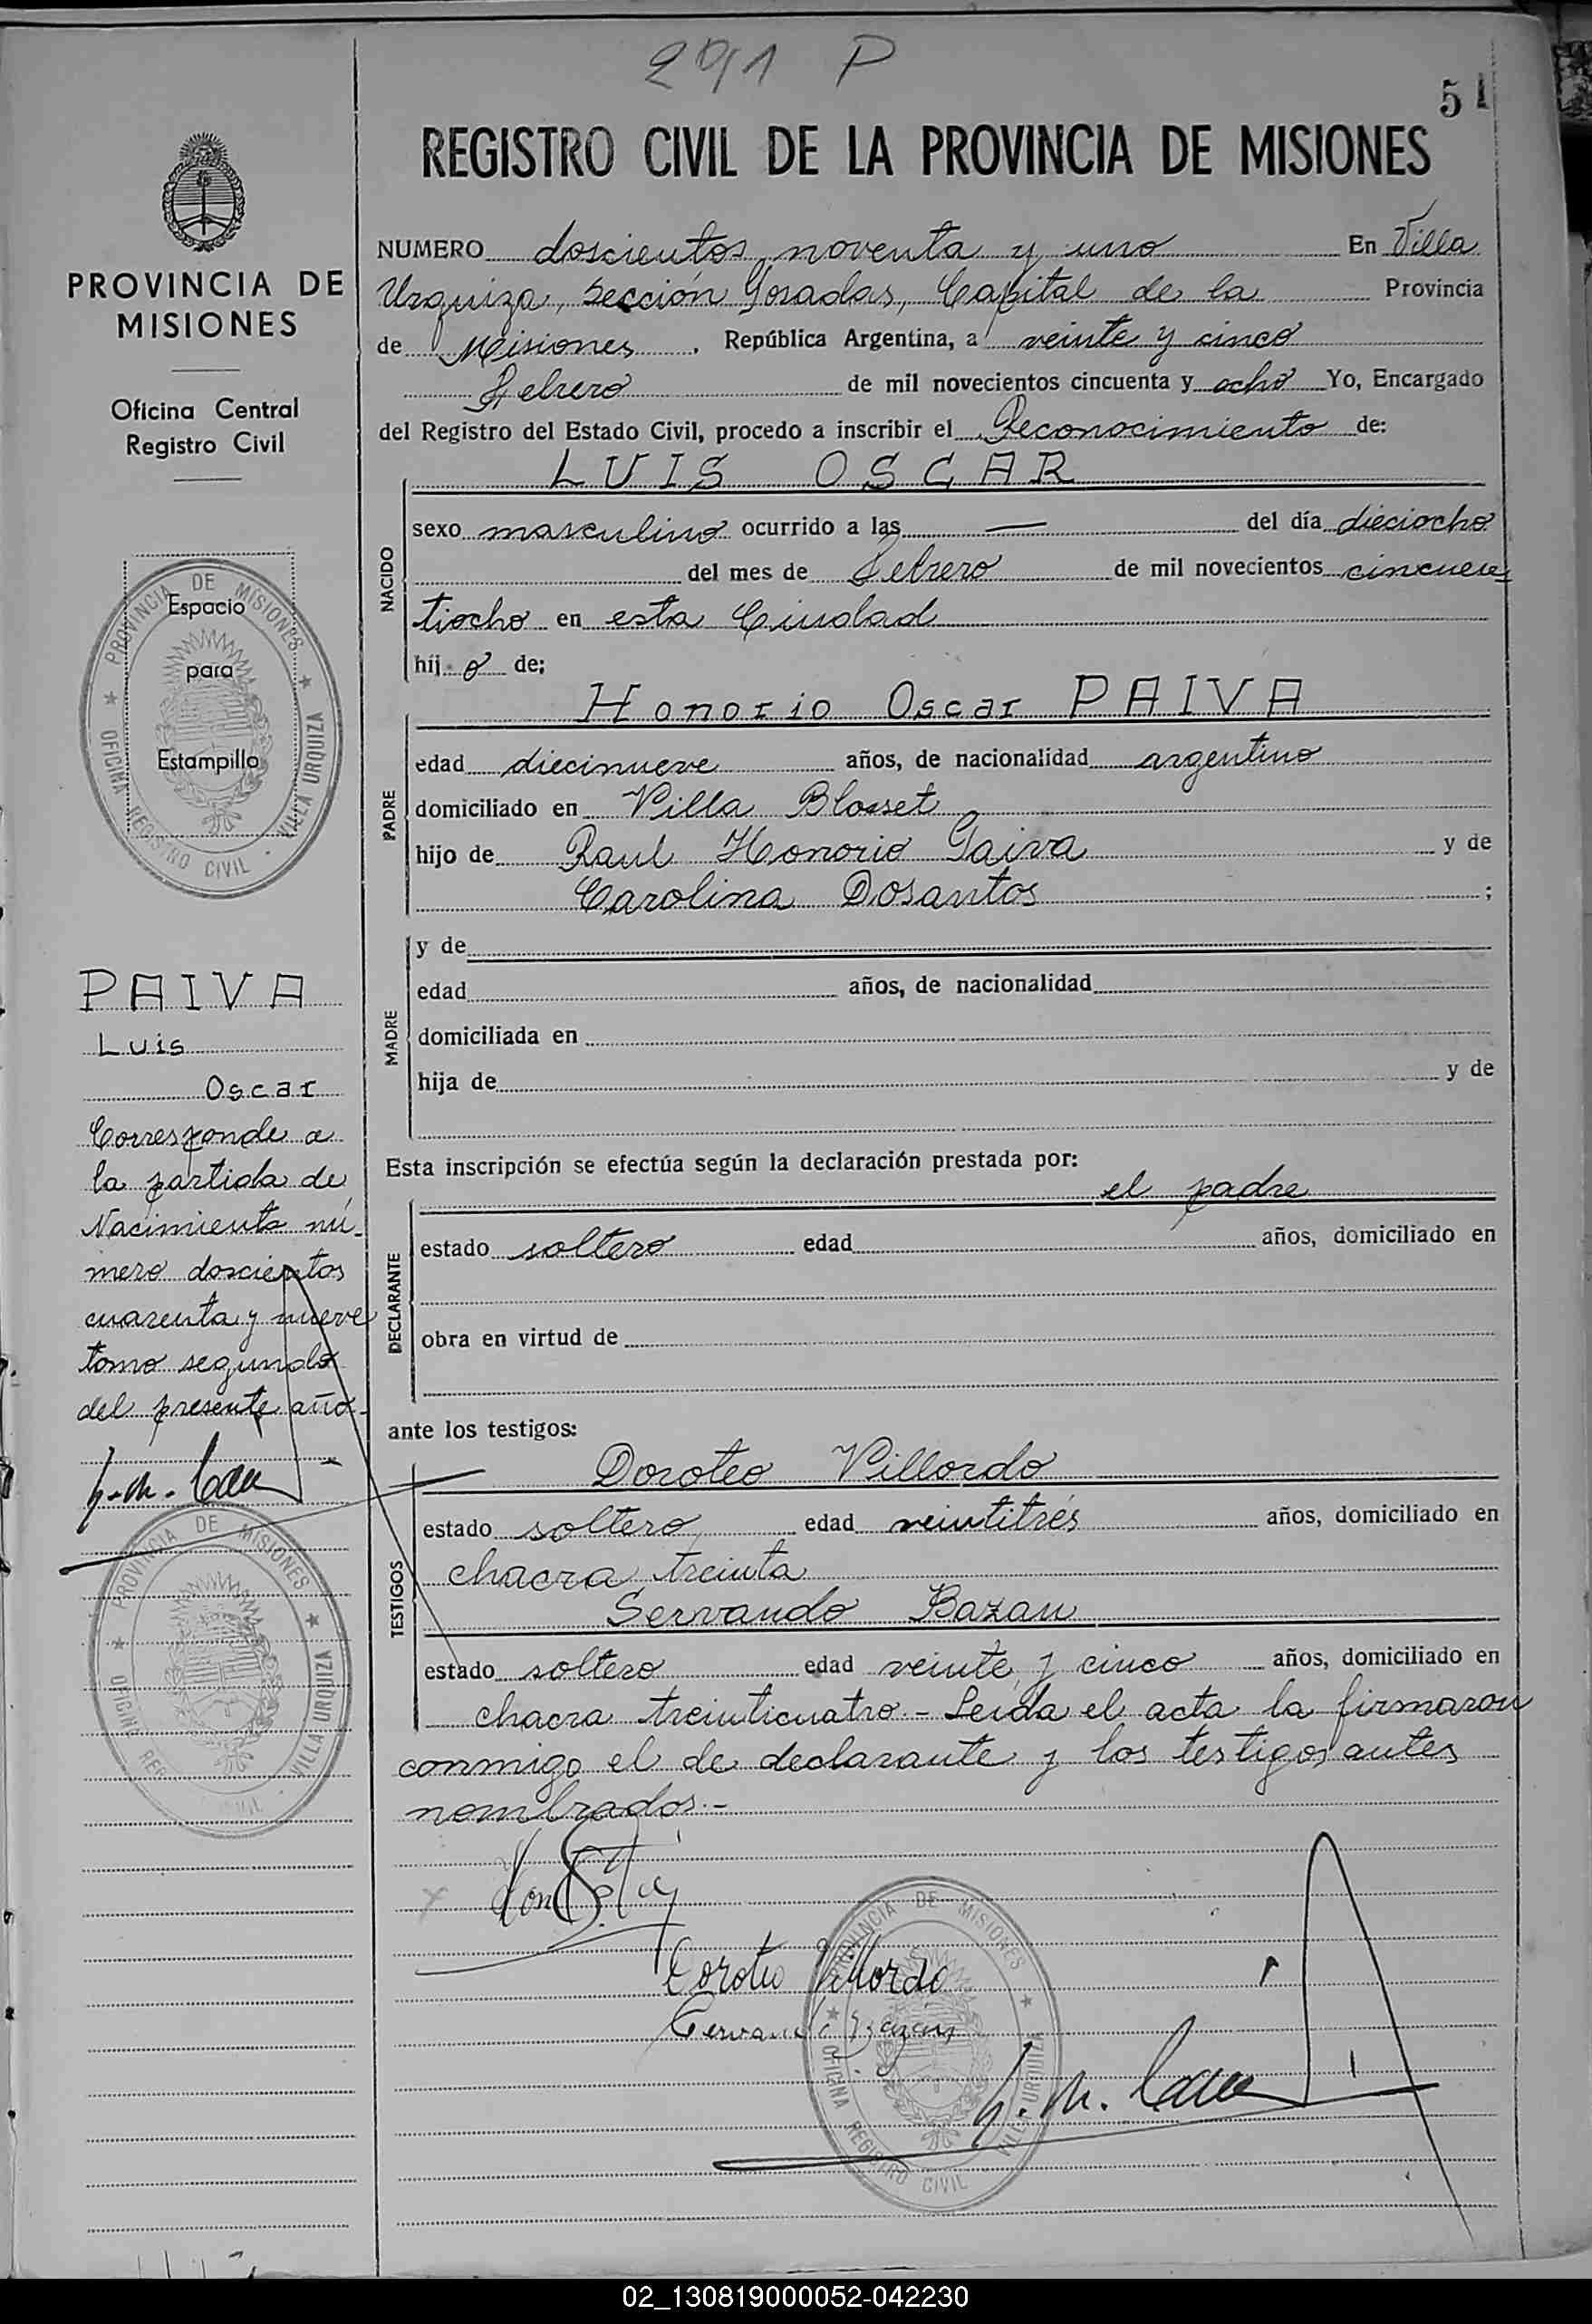 291 P
51
REGISTRO CIVIL DE LA PROVINCIA DE MISIONES
PROVINCIA DE
MISIONES
Oficina Central
Registro Civil
PROVINCIA DE MISIONES
Espacio
para
Estampilla
OFICINA REGISTRO CIVIL - VILLA URQUIZA
PAIVA
Luis
Oscar
Corresponde a
la partida de
Nacimiento nú-
mero doscientos
cuarenta y nueve
tomo segundo
del presente año-
PROVINCIA DE MISIONES
OFICINA REGISTRO CIVIL - VILLA URQUIZA
NUMERO doscientos noventa y uno En Villa
Urquiza, Sección Posadas, Capital de la Provincia
de Misiones, República Argentina, a veinte y cinco
Febrero de mil novecientos cincuenta y ocho Yo, Encargado
del Registro del Estado Civil, procedo a inscribir el Reconocimiento de:
LUIS OSCAR
NACIDO
sexo masculino ocurrido a las — del día dieciocho
del mes de Febrero de mil novecientos cincuen
tiocho en esta Ciudad
hij o de:
Honorio Oscar PAIVA
PADRE
edad diecinueve años, de nacionalidad argentino
domiciliado en Villa Blosset
hijo de Raul Honorio Paiva y de
Carolina Dosantos ;
MADRE
y de
edad años, de nacionalidad
domiciliada en
hija de y de
Esta inscripción se efectúa según la declaración prestada por:
el padre
DECLARANTE
estado soltero edad años, domiciliado en
obra en virtud de
ante los testigos:
Doroteo Villordo
TESTIGOS
estado soltero edad veintitrés años, domiciliado en
chacra treinta
Servando Bazan
estado soltero edad veinte y cinco años, domiciliado en
chacra treinticuatro - Leída el acta la firmaron
conmigo el de declarante y los testigos antes
nombrados.-
Doroteo Villordo
Servando Bazan
PROVINCIA DE MISIONES
OFICINA REGISTRO CIVIL - VILLA URQUIZA
02_130819000052-042230